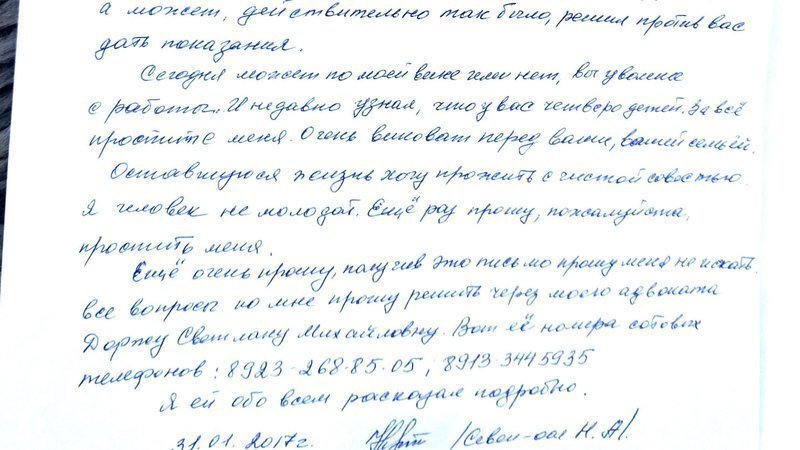 а может, действительно так было, решил против вас
дать показания.
Сегодня может по моей вене или нет, вы уволена
с работы. И недавно узнал, что у вас четверо детей. За всё
простите меня. Очень виноват перед вами, вашей семьёй.
Оставшуюся жизнь хочу прожить с чистой совастью.
Я человек не молодой. Ещё раз прошу, пожалуйста,
простить меня.
Ещё очень прошу, получив это письмо прошу меня не искать.
все вопросы ко мне прошу решить через моего адвоката
Доржу Светлану Михайловну. Вот её номера сотовых
телефонов: 8923-268-85-05; 8913-3445935
Я ей обо всем рассказал подробно.
31.01.2017г. /Севен-оол Н.А/.